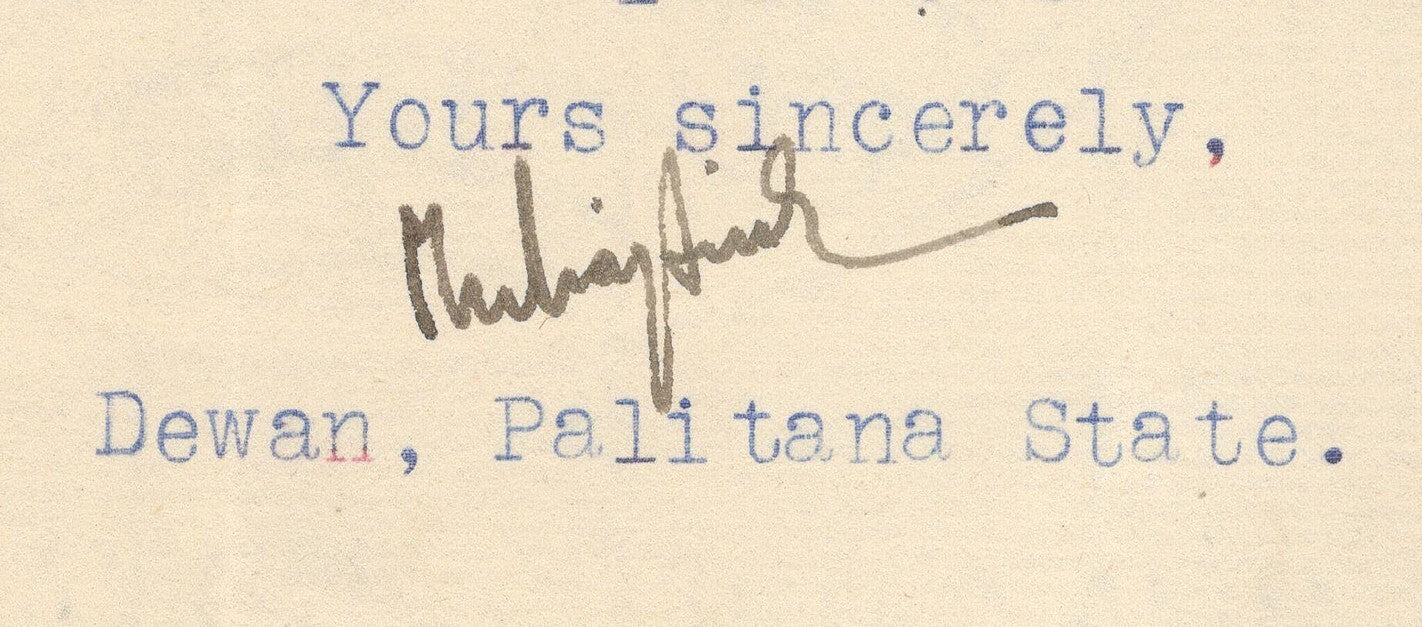 Yours sincerely,
Dewan, Palitana State.